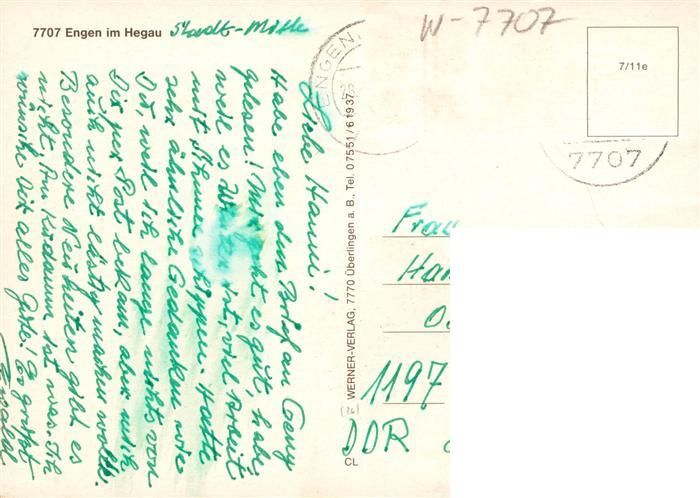 7707 Engen im Hegau Stadt-Mitte
W-7707
7/11e
ENGEN,
7707
Liebe Hanni!
Habe eben den Brief an Georg
gelesen! Mir geht es gut, habe,
weil es ist, viel Arbeit
mit Hatte
sehr ähnliche Gedanken wie
Du, weil ich lange nichts von
Dir per Post bekam, aber mich
auch nicht lästig machen wollte.
Besondere Neuheiten gibt es
nicht. Am ist was. Ich
wünsche Dir alles Gute! Es grüßt
WERNER-VERLAG, 7770 Überlingen a. B., Tel. 07551/61937
CL
(26)
Frau
Han
1197
DDR